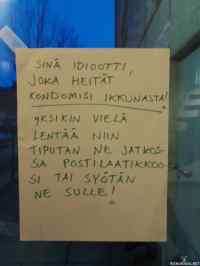 SINÄ IDIOOTTI,
JOKA HEITÄT
KONDOMISI IKKUNASTA!
YKSIKIN VIELÄ
LENTÄÄ NIIN
TIPUTAN NE JATKOS-
SA POSTILAATIKKOO-
SI TAI SYÖTÄN
NE SULLE!